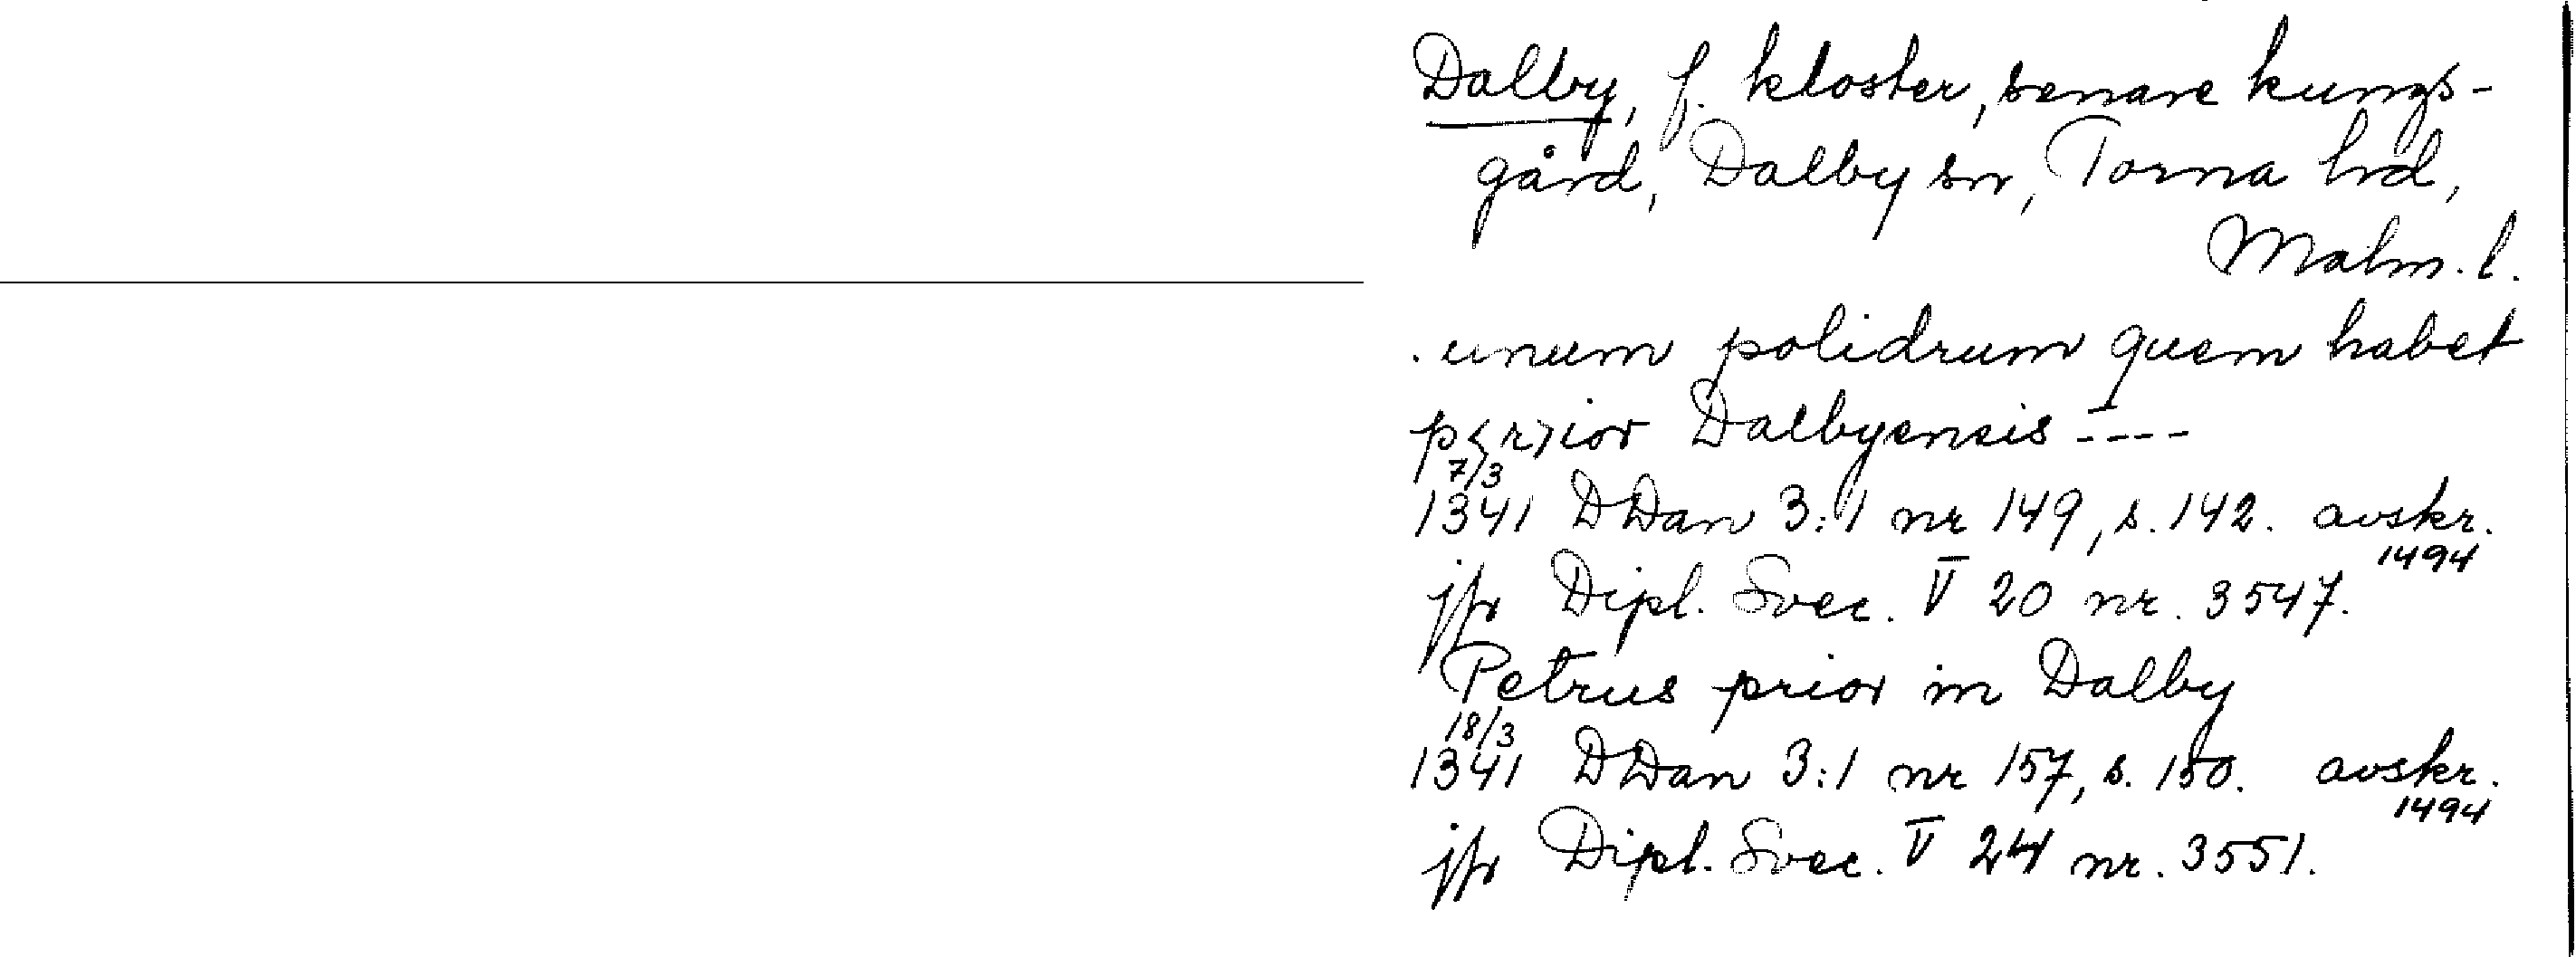 Dalby, f. kloster, senare kungs-
gård, Dalby sn, Torna hd,
Malm. l.
. unum polidrum quem habet
p<r>ior Dalbyensis ----
7/3
1341 DDan 3:1 nr 149, s. 142. avskr.
1494
jfr Dipl. Svec. V 20 nr. 3547.
Petrus prior in Dalby
18/3
1341 DDan 3:1 nr 157, s. 150. avskr.
1494
jfr Dipl. Svec. V 24 nr. 3551.